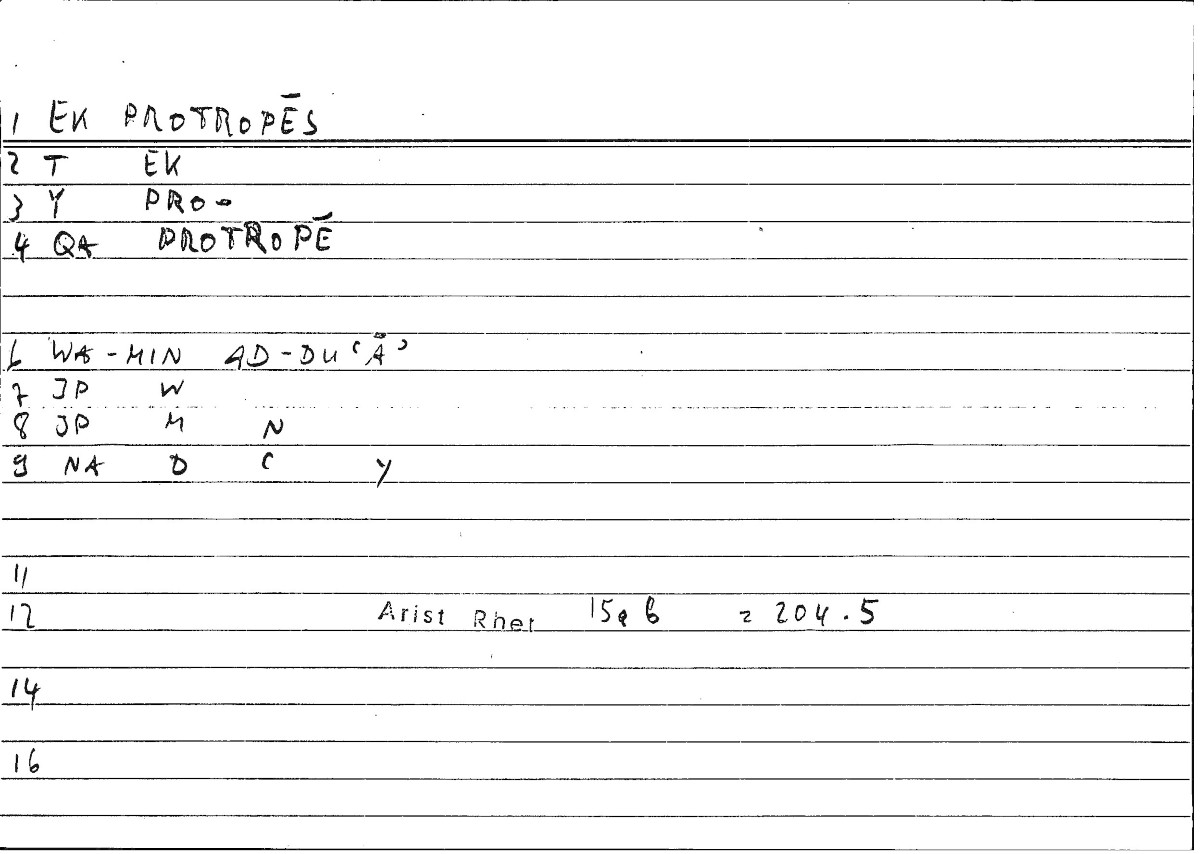 1 EK PROTROPĒS
2 T EK
3 Y PRO-
4 QA PROTROPĒ
6 WA-MIN AD-DUʿĀʾ
7 JP W
8 JP M N
9 NA D ʿ Y
11
12 Arist Rhet 15a6 = 204.5
14
16